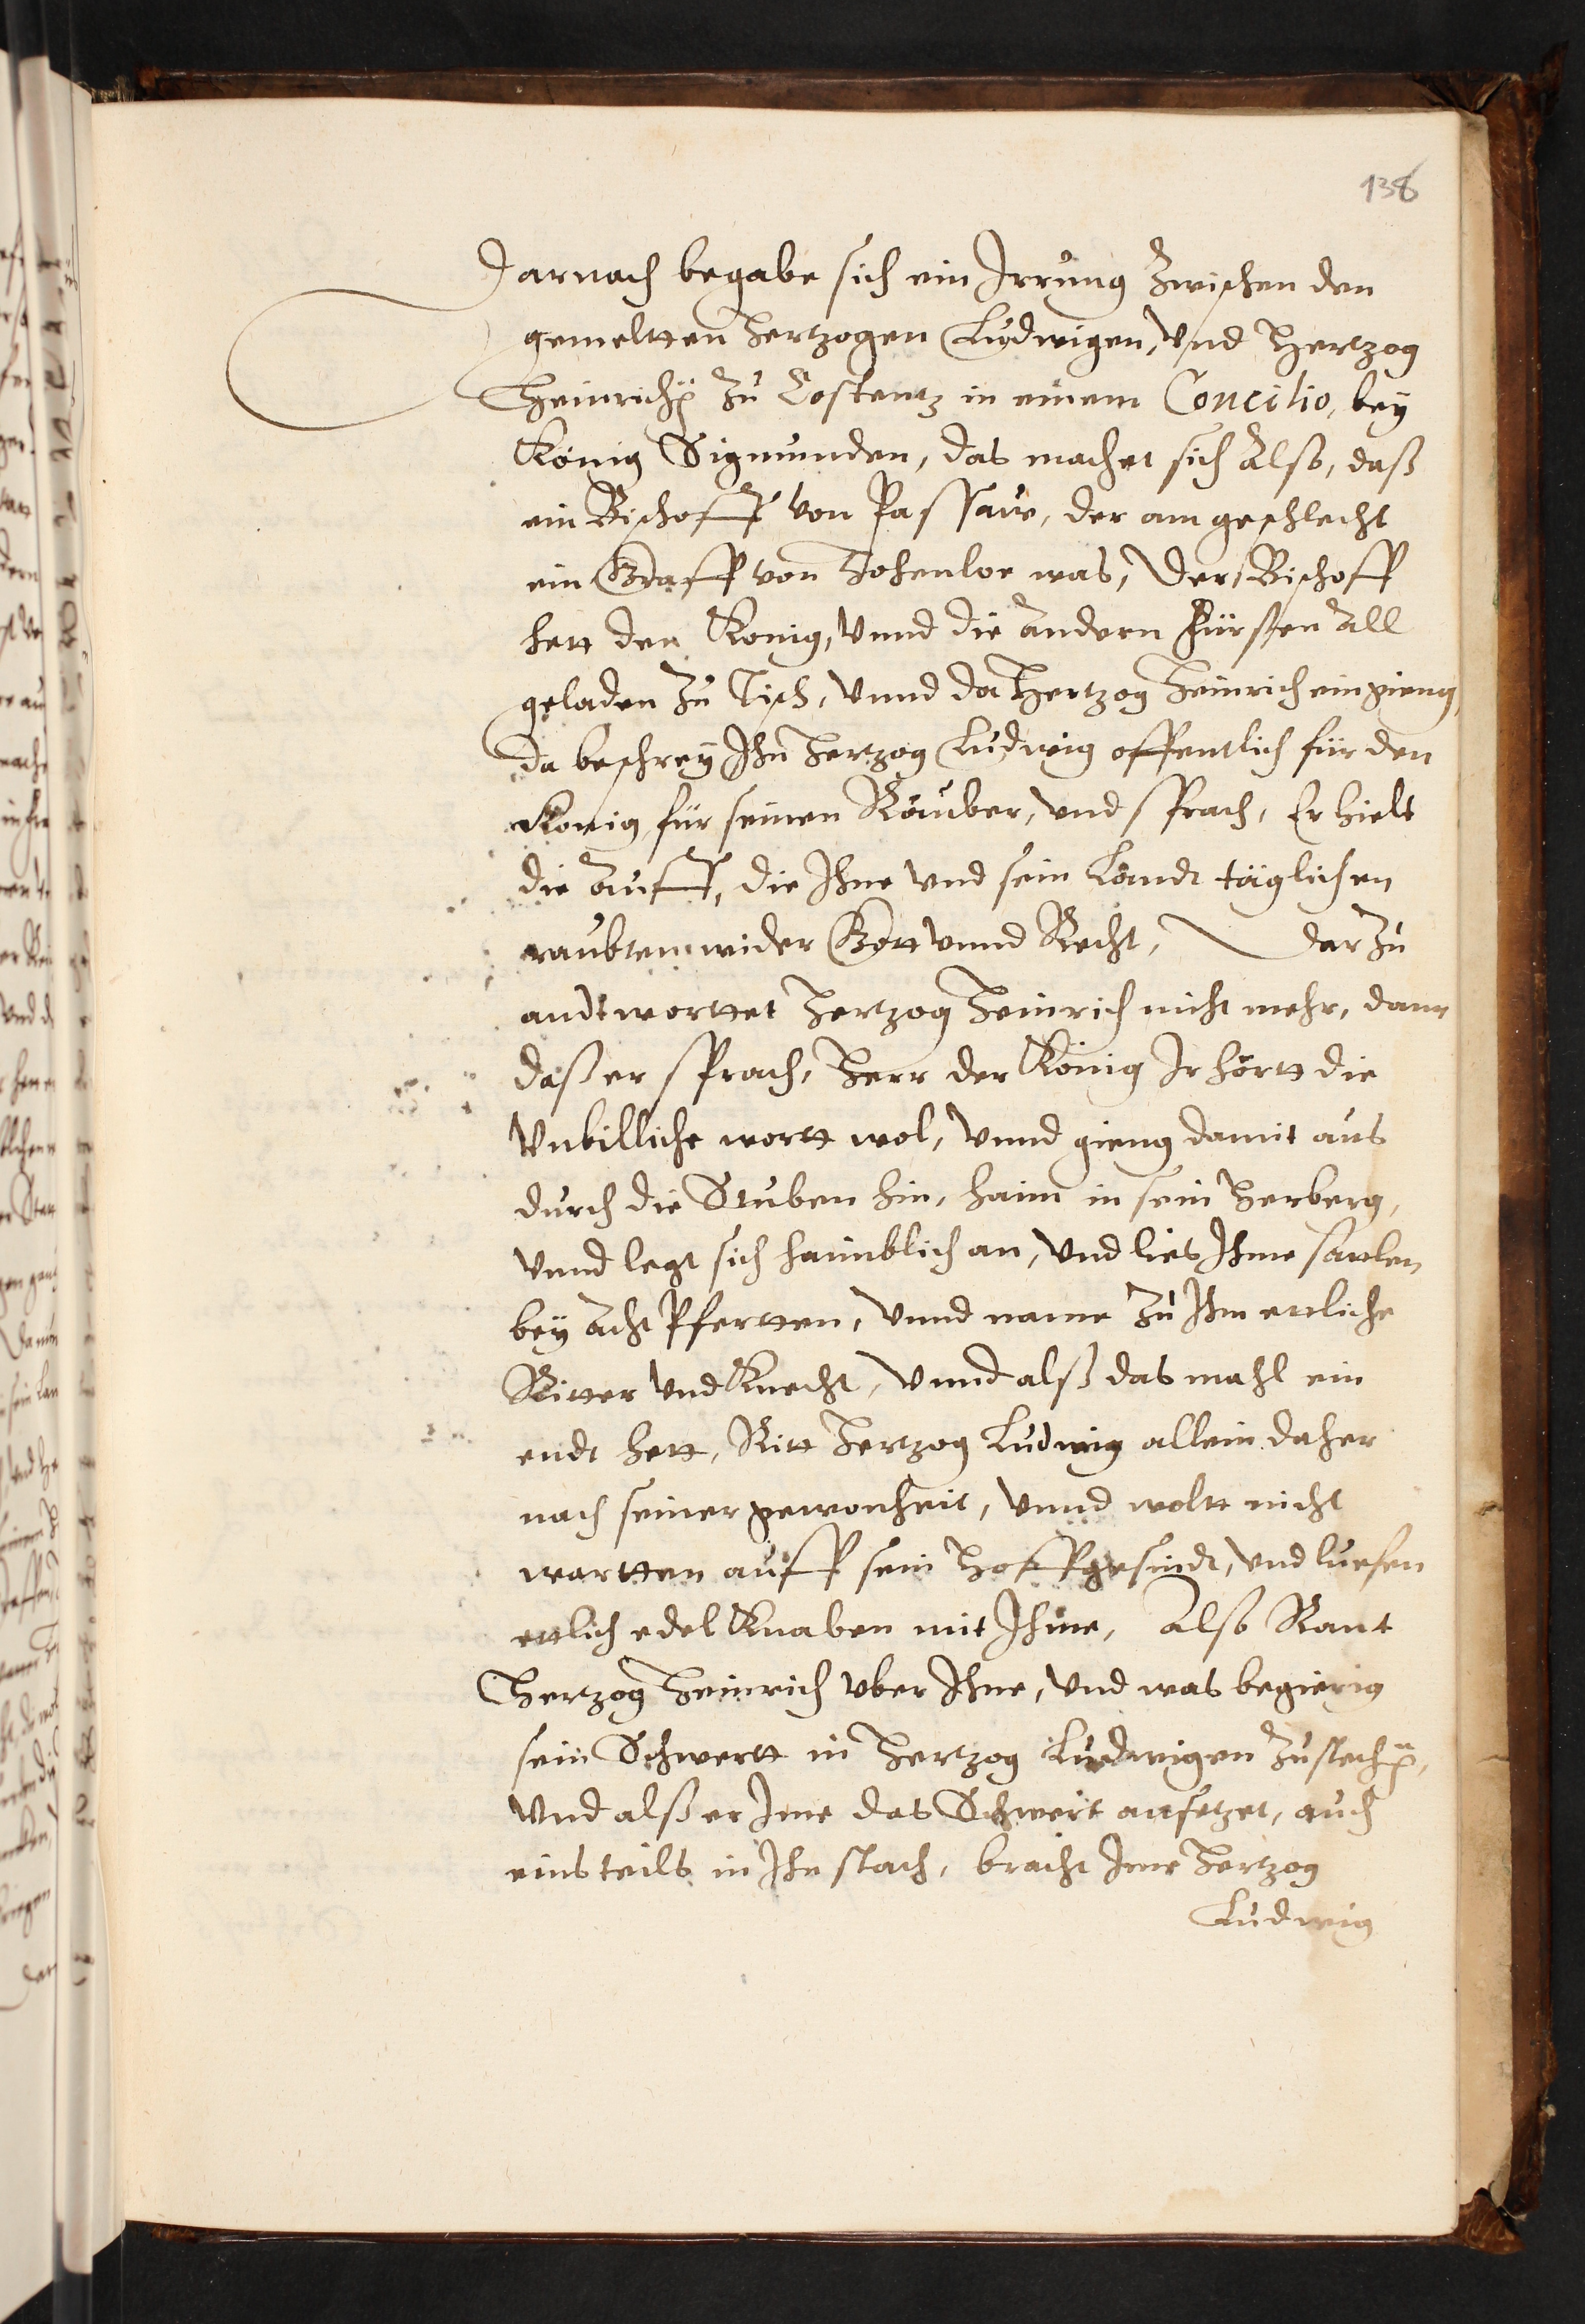 138
Darnach begabe sich ein Irrung zwischen den
gemeltten Hertzogen Ludwigen, vnd Hertzog
Heinrichen zu Costentz in einem Concilio, bey
König Sigmunden, das machet sich Also, daß
ein Bischoff von Passaw, der am geschlecht
ein Graff von Hohenloe was, Der Bischoff
hett den Konig, vnnd die Andern Fürsten All
geladen zu Tisch, vnnd da Hertzog Heinrich eingieng,
da beschrey Ihn Hertzog Ludwig offentlich für den
Konig, für seinen Rauber, vnd sprach, Er hielt
die Auff, die Ihne vnd sein Landt täglichen
raubten wider Gott vnnd Recht, Dar zu
andtworttet Hertzog Heinrich nicht mehr, dann
daß er sprach, Herr der König Ir hörtt die
Vnbilliche wortt wol, vnnd gieng damit aus
durch die Stuben hin, haim in sein Herberg,
vnnd legt sich haimblich an, vnd lies Ihme satlen
bey Acht Pfertten, vnnd name zu Ihm etliche
Ritter vnd Knecht, vnnd alß das mahl ein
endt hett, Ritt Hertzog Ludwig allein daher
nach seiner gewonheit, vnnd woltt nicht
wartten auff sein Hoffgesindt, vnd luefen
ettlich edel Knaben mit Ihme, Also Rant
Hertzog Heinrich vber Ihne, vnd was begierig
sein Schwertt in Hertzog Ludwigen zustechen,
Vnd alß er Ime das Schwert ansetzet, auch
eins teils in Ihn stach, bracht Ime Hertzog
Ludwig